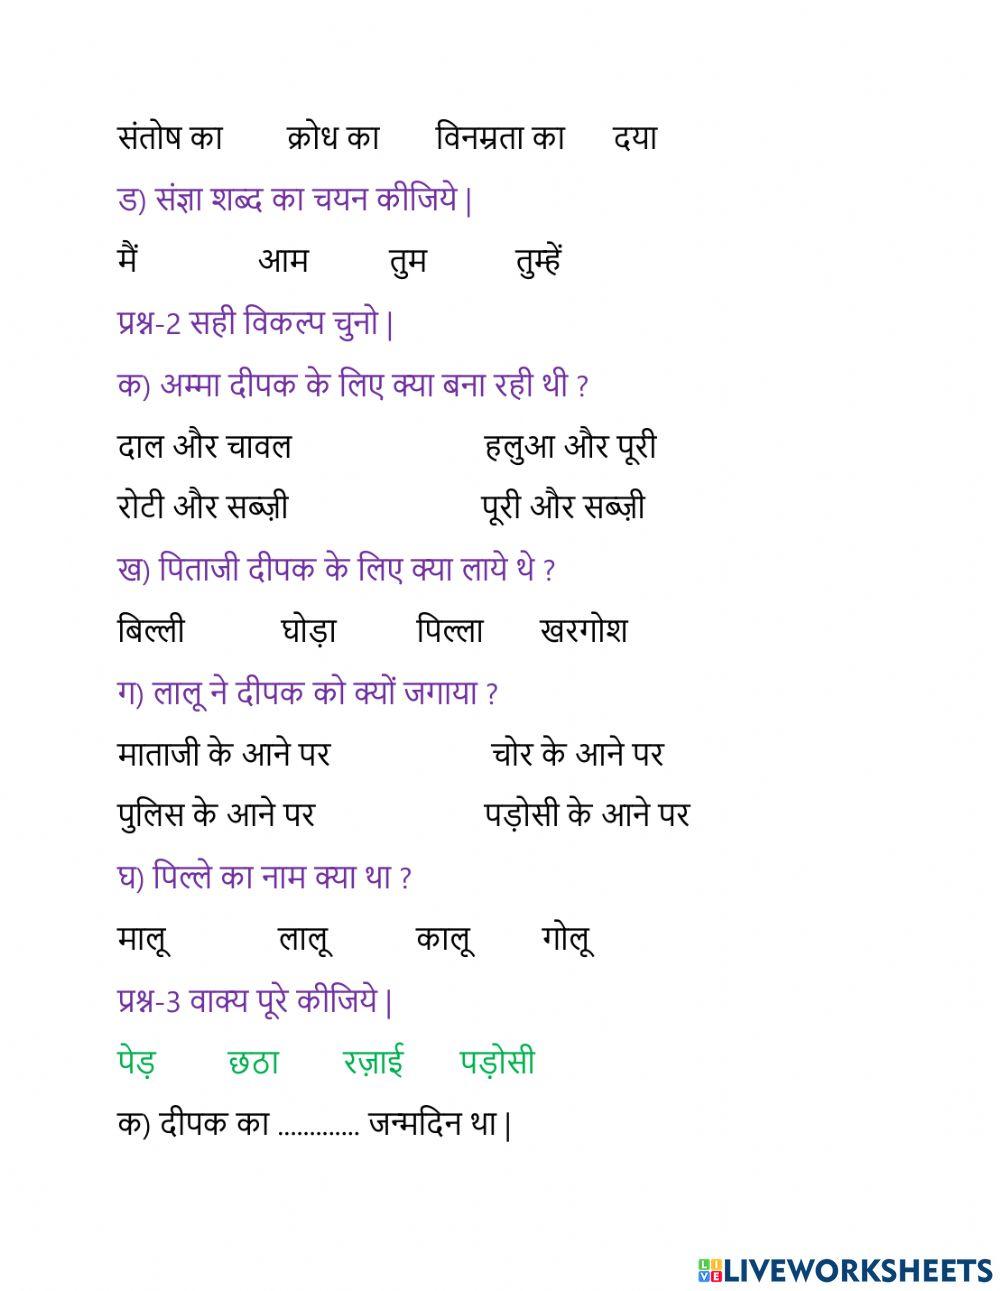 संतोष का क्रोध का विनम्रता का दया
ड) संज्ञा शब्द का चयन कीजिये |
मैं आम तुम तुम्हें
प्रश्न-2 सही विकल्प चुनो |
क) अम्मा दीपक के लिए क्या बना रही थी ?
दाल और चावल हलुआ और पूरी
रोटी और सब्ज़ी पूरी और सब्ज़ी
ख) पिताजी दीपक के लिए क्या लाये थे ?
बिल्ली घोड़ा पिल्ला खरगोश
ग) लालू ने दीपक को क्यों जगाया ?
माताजी के आने पर चोर के आने पर
पुलिस के आने पर पड़ोसी के आने पर
घ) पिल्ले का नाम क्या था ?
मालू लालू कालू गोलू
प्रश्न-3 वाक्य पूरे कीजिये |
पेड़ छठा रज़ाई पड़ोसी
क) दीपक का ............. जन्मदिन था |
LIVE LIVEWORKSHEETS